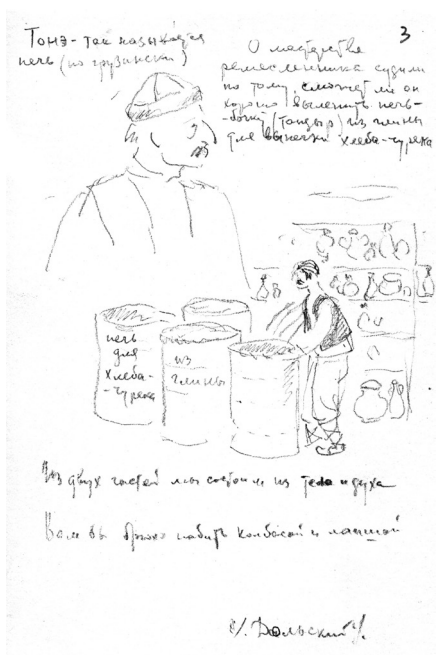 Тонэ - так называется
печь (по грузински)
3
О мастерстве
ремесленника судили
по тому, сможет ли он
хорошо вылепить печь-
(тондыр) из глины
для выпечки хлеба-чурека
печь
для
хлеба-
-чурека
из
глины
Из двух частей мы состоим из тела и духа
Вам бы брюхо набить колбасой и лапшой
Дольский